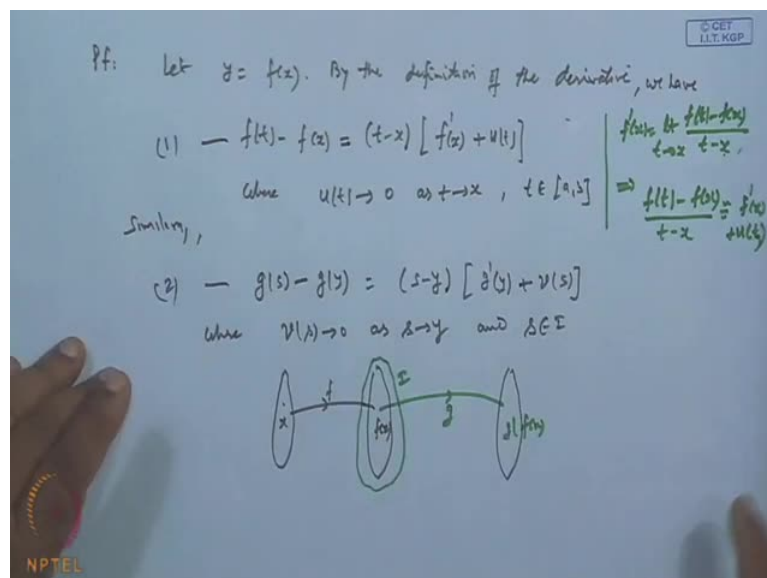 © CET
I.I.T. KGP
Pf: Let y = f(x). By the definition of the derivative, we have
(1) — f(t) - f(x) = (t-x) [f'(x) + u(t)]
where u(t) → 0 as t→x, t ∈ [a,b]
f'(x) = lt t→x f(t)-f(x) / t-x.
⇒ f(t) - f(x) / t-x = f'(x) + u(t)
Similarly,
(2) — g(s) - g(y) = (s-y) [g'(y) + v(s)]
where v(s)→0 as s→y and s∈I
x f f(x) I g g(f(x))
NPTEL